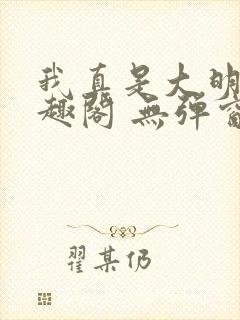 我真是大明
趣閣 無彈窗
翟某仍